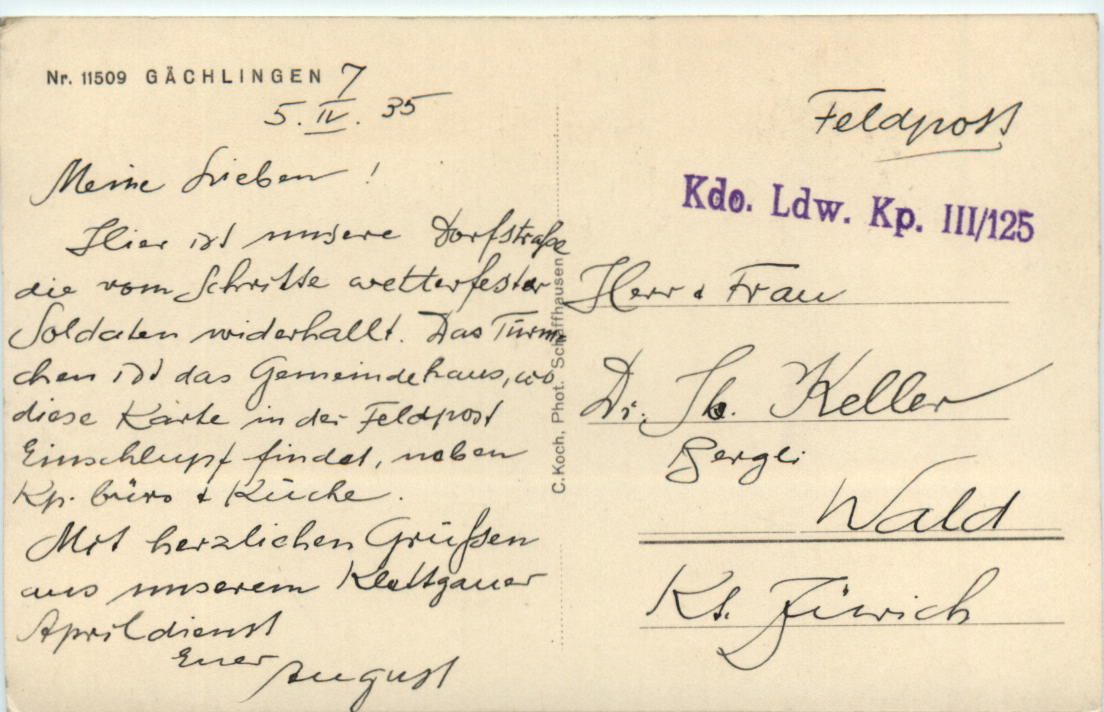 Nr. 11509 GÄCHLINGEN 7
5. IV. 35
Meine Lieben !
Hier ist unsere Dorfstraße
die vom Schritte wetterfester
Soldaten widerhallt. Das Türm-
chen ist das Gemeindehaus, wo
diese Karte in der Feldpost
Einschlupf findet, neben
Kp. büro & Küche.
Mit herzlichen Grüßen
aus unserem Klettgauer
Aprildienst
Euer August
C. Koch, Phot. Schaffhausen
Feldpost
Kdo. Ldw. Kp. III/125
Herr & Frau
Dr. Keller
Bergli
Wald
Kt. Zürich